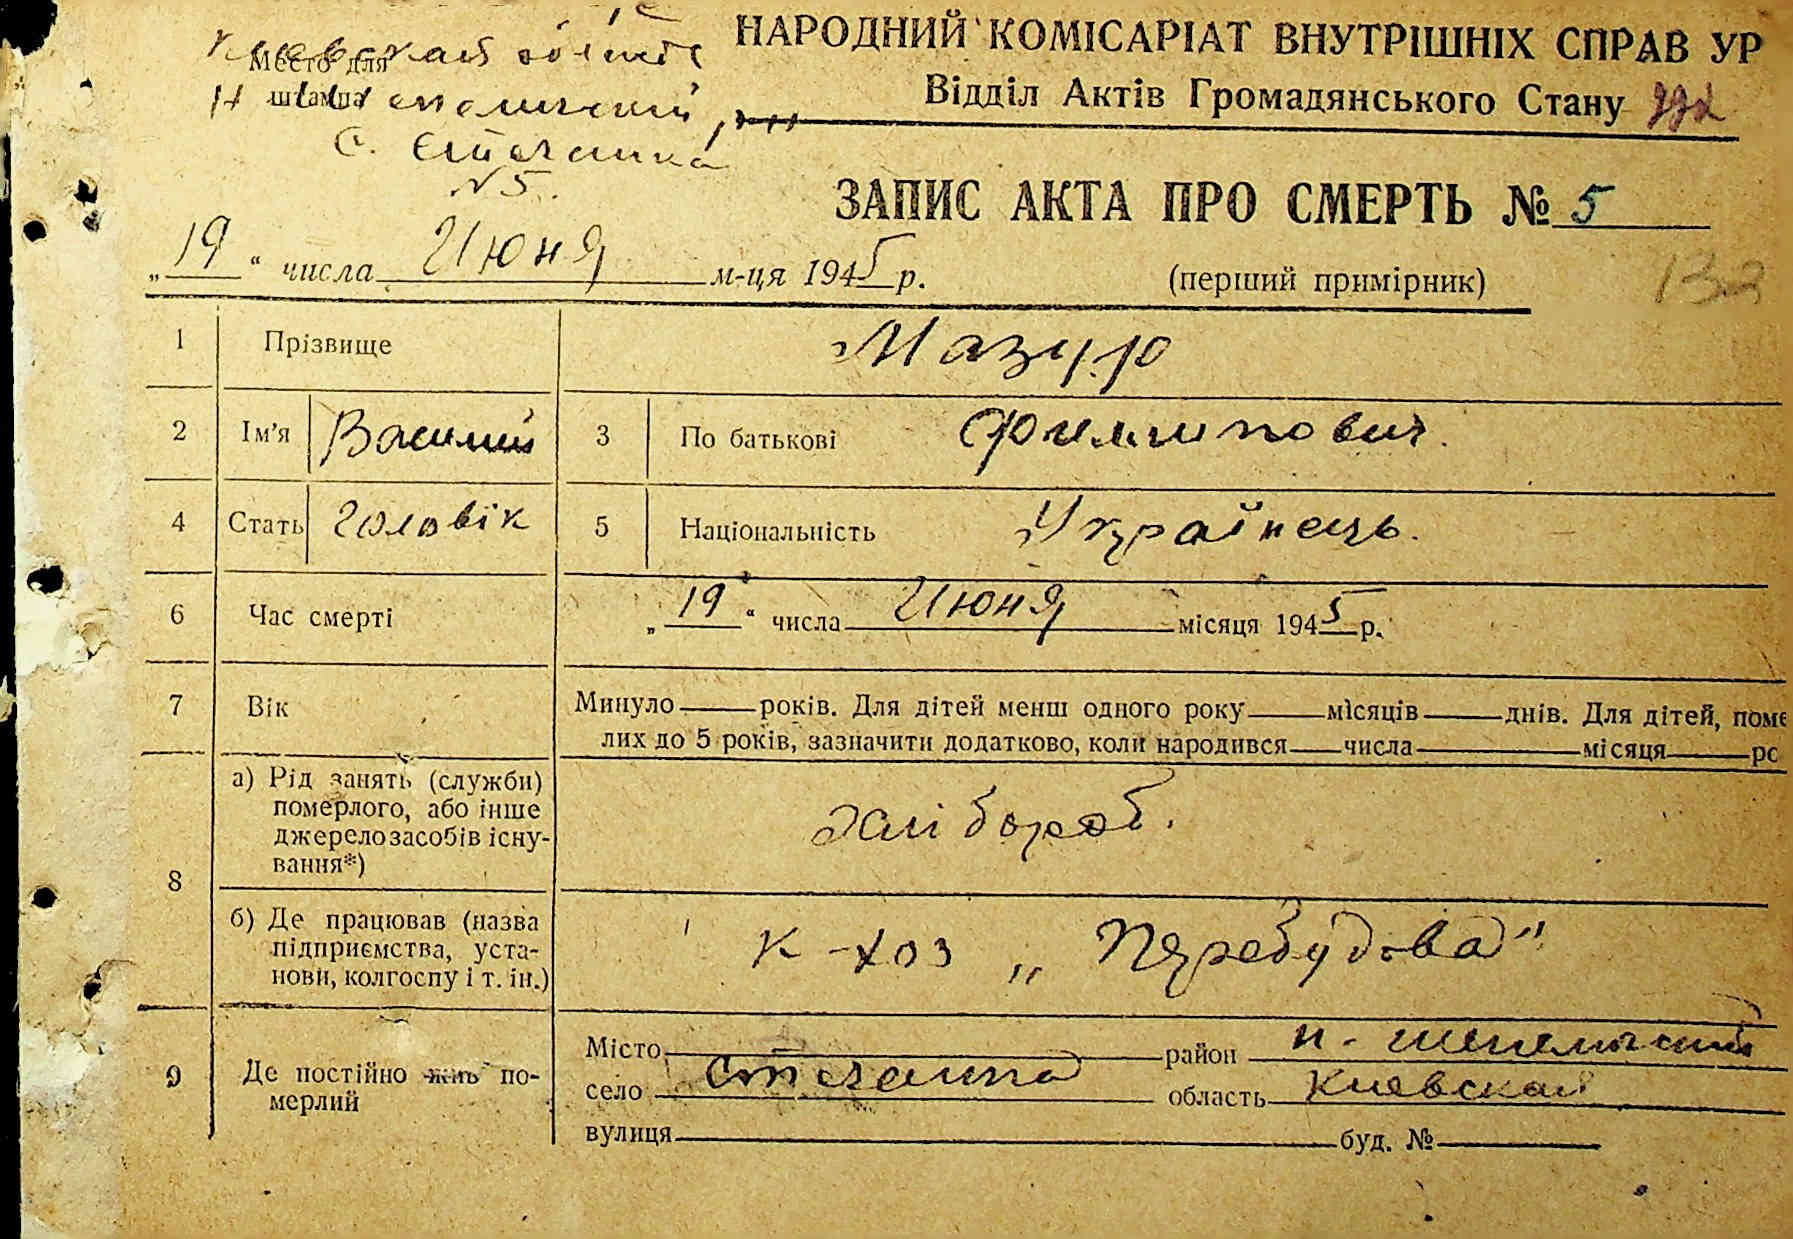 Киевская область
НАРОДНИЙ КОМІСАРІАТ ВНУТРІШНІХ СПРАВ УР
Место для
штампа
Відділ Актів Громадянського Стану
С. Степанка
№ 5.
ЗАПИС АКТА ПРО СМЕРТЬ № 5
„19“ числа Июня м-ця 1945 р.
(перший примірник)
132
1 Прізвище Мазур
2 Ім'я Василий 3 По батькові Филиппович.
4 Стать Чоловік 5 Національність Українець.
6 Час смерті „19“ числа Июня місяця 1945 р.
7 Вік Минуло років. Для дітей менш одного року місяців днів. Для дітей, поме
лих до 5 років, зазначити додатково, коли народився числа місяця ро
8 а) Рід занять (служби)
померлого, або інше
джерело засобів існу-
вання*)
хлібороб.
б) Де працював (назва
підприємства, уста-
нови, колгоспу і т. ін.)
к-хоз „Перебудова"
9 Де постійно жив по-
мерлий
Місто район
село область Киевская
вулиця буд. №